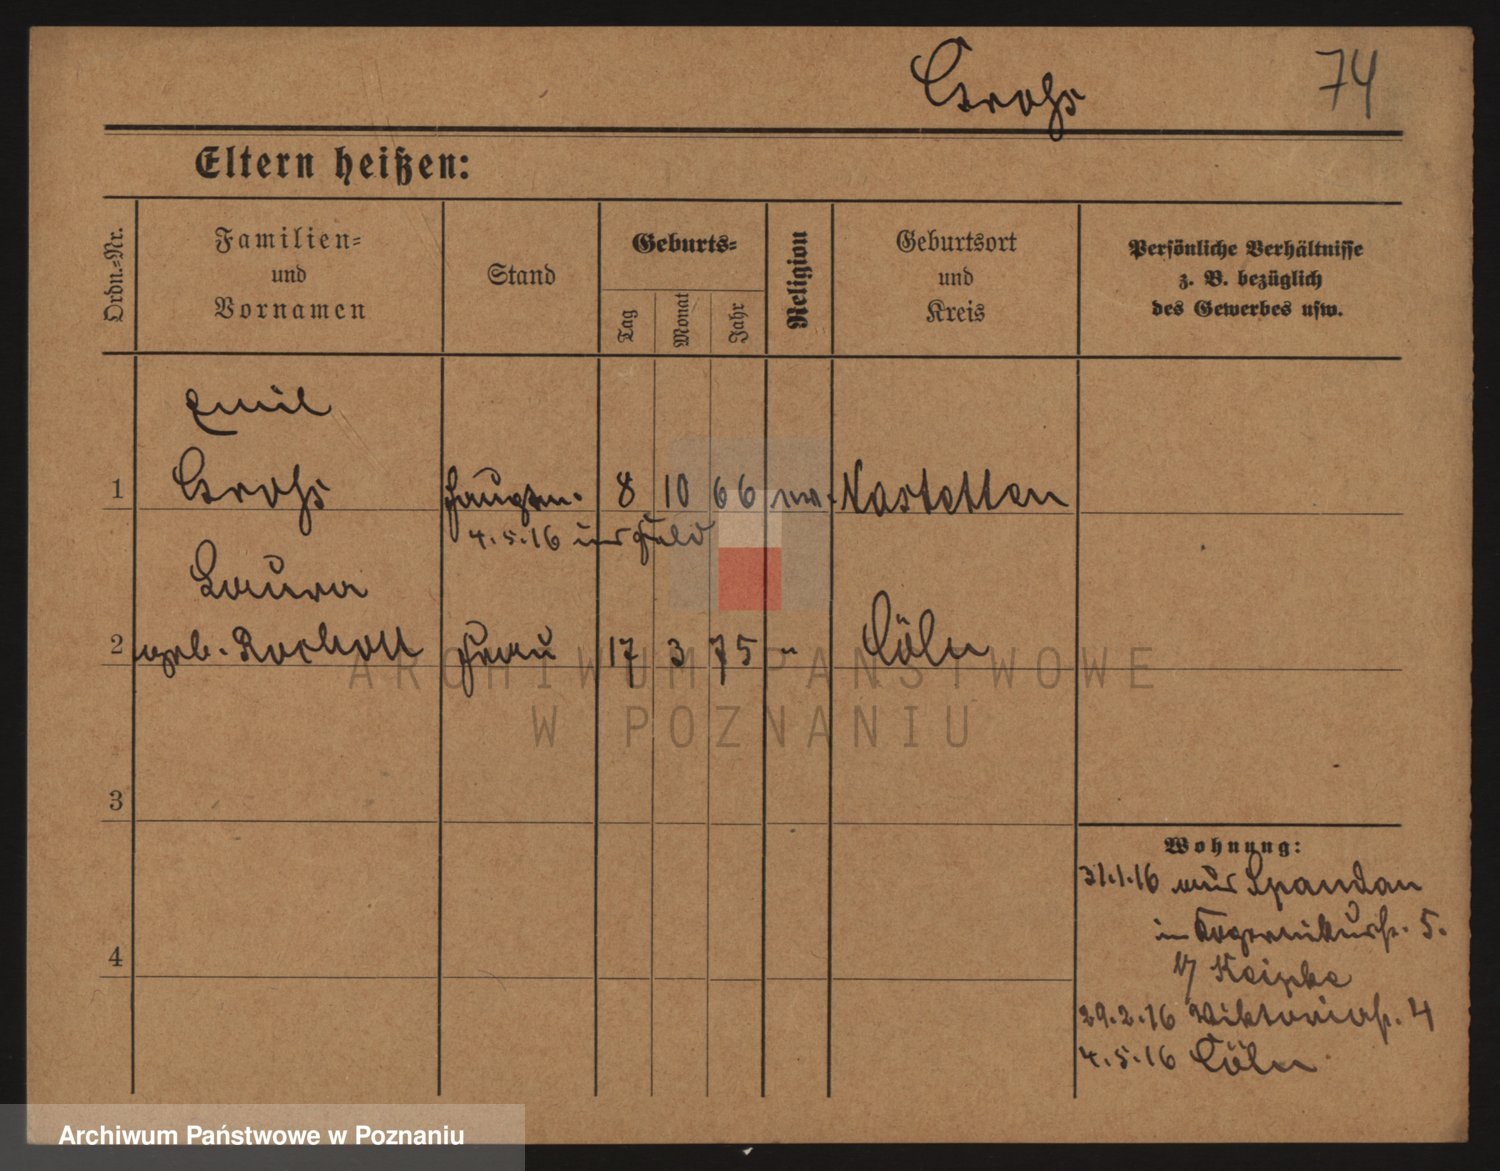 Grohs
74
Eltern heißen:
Ordn.-Nr.
Familien-
und
Vornamen
Stand
Geburts-
Tag
Monat
Jahr
Religion
Geburtsort
und
Kreis
Persönliche Verhältnisse
z. B. bezüglich
des Gewerbes usw.
Emil
1 Grohs Hauptm. 8 10 66 ev. Nastetten
4.5.16 ins Feld
Laura
2 geb. Rocholl Frau 17 3 75 " Cöln
3
4
Wohnung:
31.1.16 aus Spandau
in Kopernikusstr. 5.
b/
29.2.16 Viktoriastr. 4
4.5.16 Cöln
ARCHIWUM PAŃSTWOWE
W POZNANIU
Archiwum Państwowe w Poznaniu